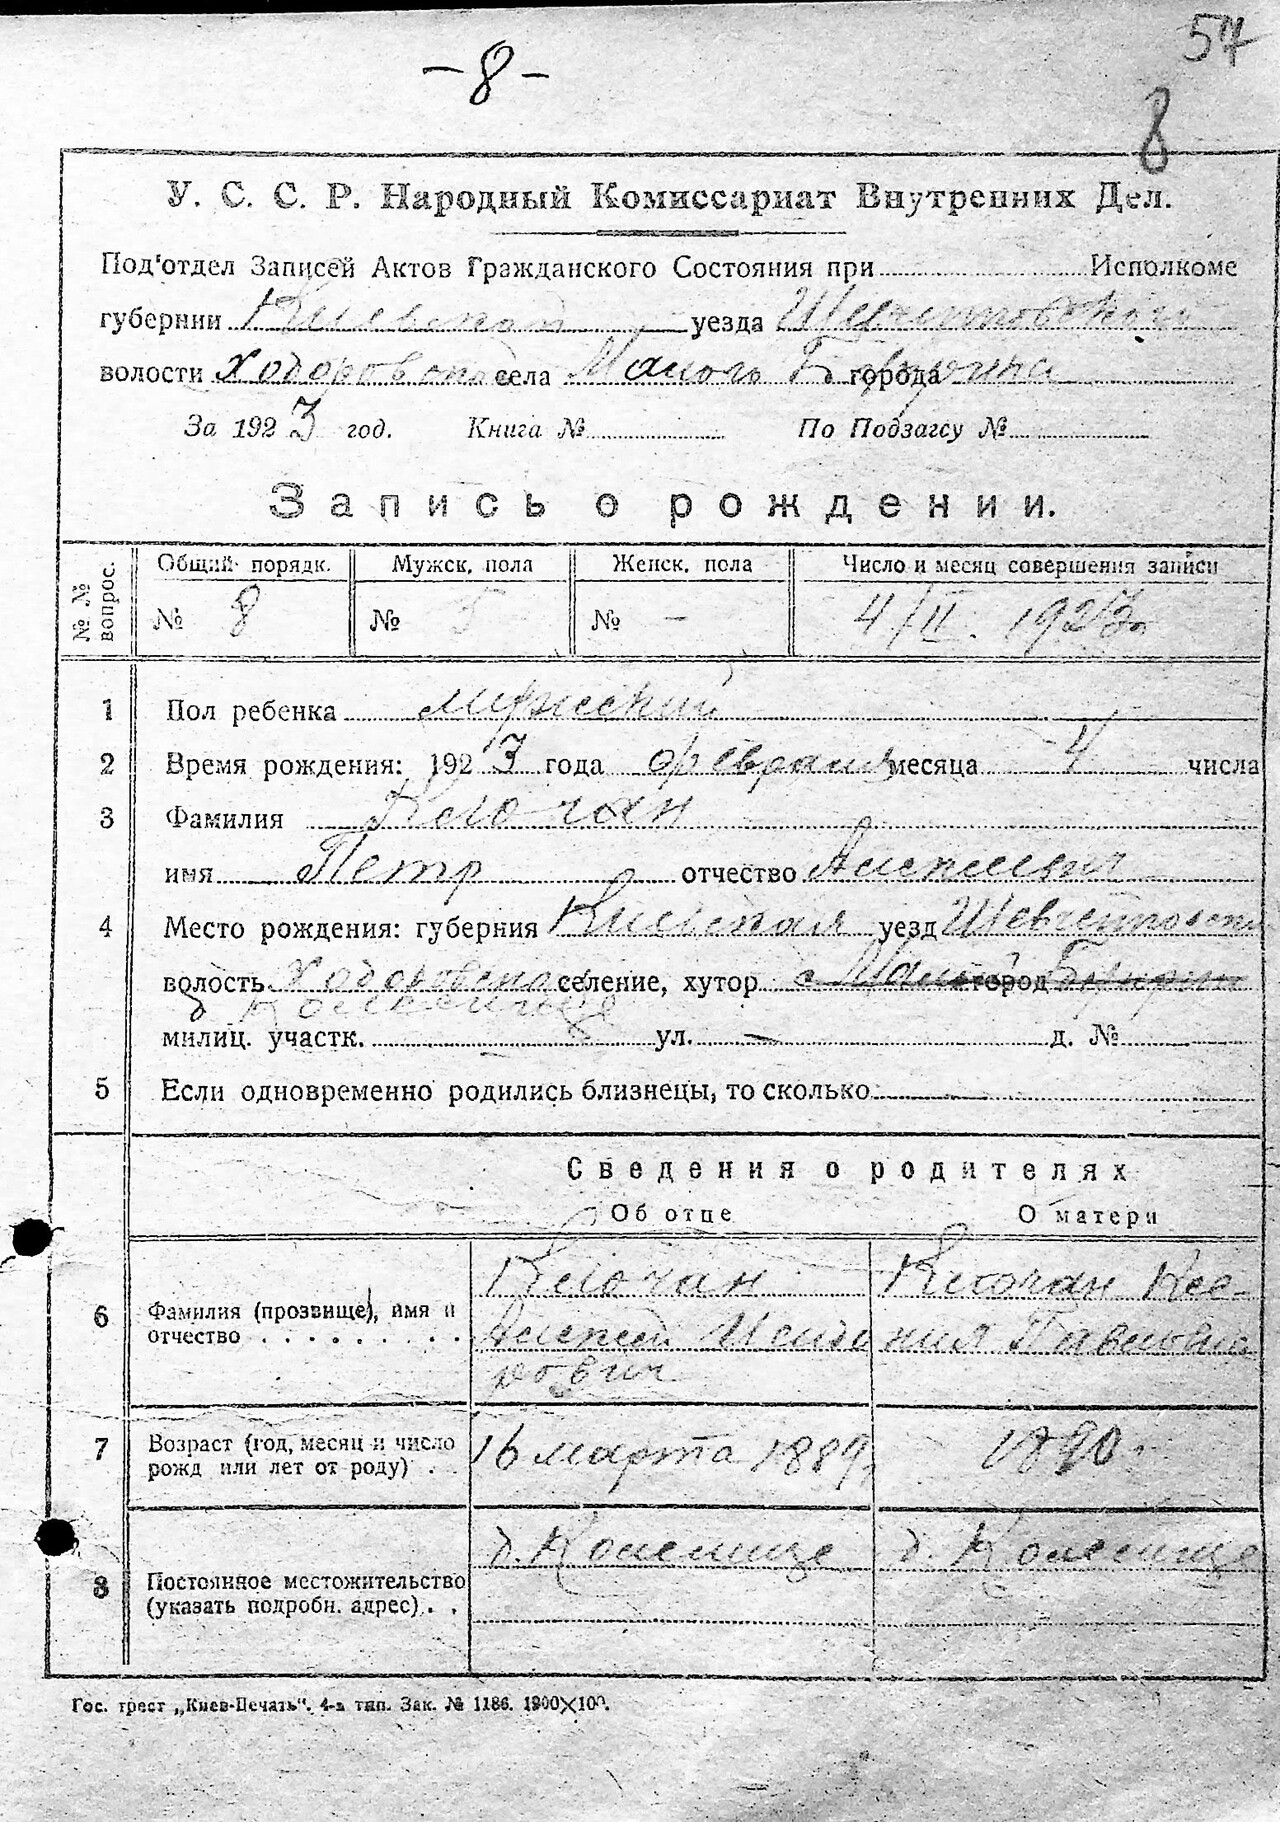 57
- 8 -
8
У. С. С. Р. Народный Комиссариат Внутренних Дел.
Под'отдел Записей Актов Гражданского Состояния при Исполкоме
губернии Киевской уезда Шевченковского
волости Ходоровской села Малого Букрина города
За 1923 год. Книга № По Подзагсу №
Запись о рождении.
№ № вопрос.
Общий порядк. Мужск. пола Женск. пола Число и месяц совершения записи
№ 8 № 5 № - 4/II. 1923г.
1 Пол ребенка мужской
2 Время рождения: 1923 года февраля месяца 4 числа
3 Фамилия Клочан
имя Петр отчество Алексеевич
4 Место рождения: губерния Киевская уезд Шевченковский
волость Ходоровской селение, хутор с. Малый город Букрин
милиц. участк. ул. — д. №
5 Если одновременно родились близнецы, то сколько
Сведения о родителях
Об отце О матери
6 Фамилия (прозвище), имя и отчество
Клочан Алексей Исидорович
Клочан Ксения Павловна
7 Возраст (год, месяц и число рожд или лет от роду)
16 марта 1889г. 1890г.
8 Постоянное местожительство (указать подробн. адрес)
Гос. трест „Киев-Печать". 4-я тип. Зак. № 1186. 1200×100.